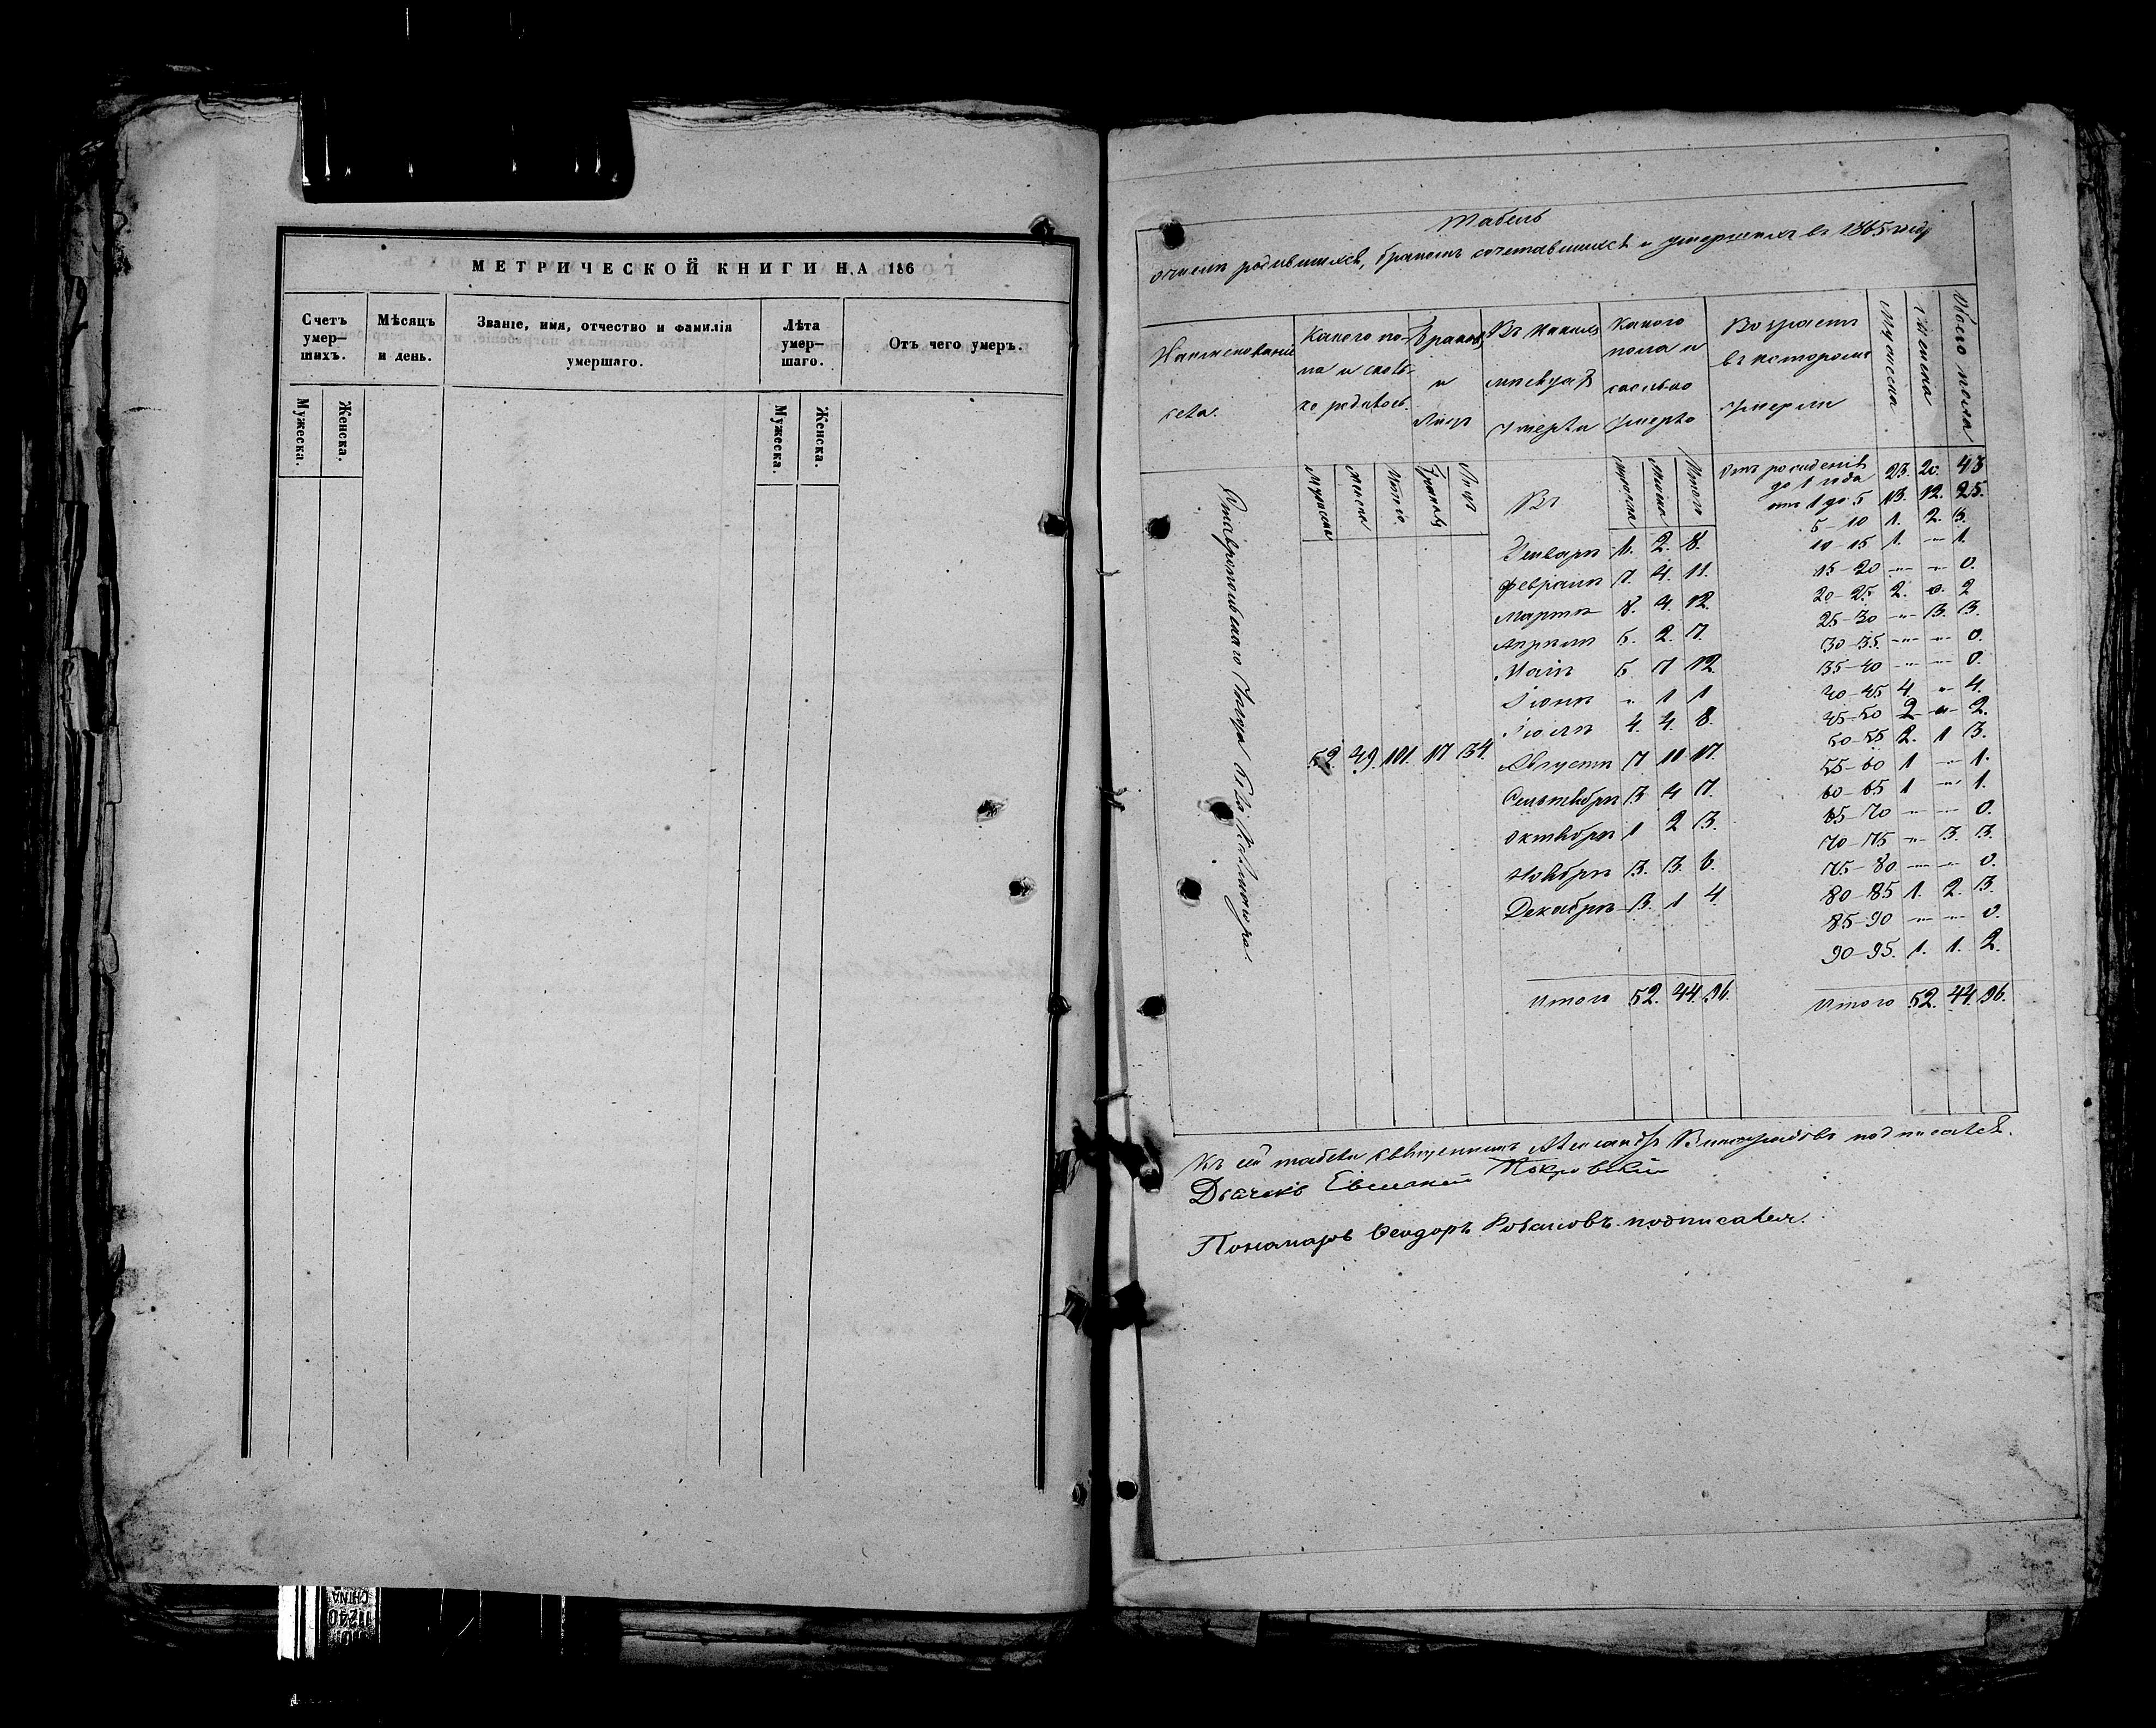 МЕТРИЧЕСКОЙ КНИГИ НА 186
Счетъ умер-шихъ.
Мѣсяцъ и день.
Званіе, имя, отчество и фамилія умершаго.
Лѣта умер-шаго.
Отъ чего умеръ.
Мужеска. Женска. Мужеска. Женска.
Табель
о числѣ родившихся, бракомъ сочетавшихся и умершихъ въ 1865 году
Наименованіе села.
Какого по-ла и сколь-ко родилось.
Браковъ и лицъ
Въ какихъ мѣсяцахъ умерли
Какого пола и сколько умерло
Возрастъ въ которомъ умерли
Мужеска Женска Обоего пола
Мужеска Женска Итого Браковъ Лицъ
Въ
Мужеска Женска Итого
52. 49. 101. 17 34.
Январѣ 2. 8.
Февралѣ 7. 4. 11.
Мартѣ 8. 4. 12.
Апрѣлѣ 5. 2. 7.
Маіѣ 5. 7 12
Іюнѣ " 1 1
Іюлѣ 4. 4. 8.
Августѣ 7. 10. 17.
Сентябрѣ 3 4 7.
Октябрѣ 1 2 3.
Ноябрѣ 3. 3. 6.
Декабрѣ 3. 1 4.
Итого 52. 44. 96.
Отъ рожденія до 1 года 23. 20. 43
отъ 1 до 5 13. 12. 25.
5-10 1. 2. 3.
10-15 1. " 1.
15-20 " " 0.
20-25 2. 0. 2
25-30 " 3. 3.
30-35 " " 0.
35-40 " " 0.
40-45 4. " 4.
45-50 2 " 2.
50-55 2. 1 3.
55-60 1 " 1.
60-65 1 " 1.
65-70 " " 0.
70-75 " 3. 3.
75-80 " " 0.
80-85 1. 2. 3.
85-90 " " 0.
90-95. 1. 1. 2.
Итого 52. 44. 96.
Къ сей табели священникъ Александръ Виноградовъ подписался.
Дьячекъ Евсикній Покровскій
Пономарь Ѳеодоръ Розановъ подписался.